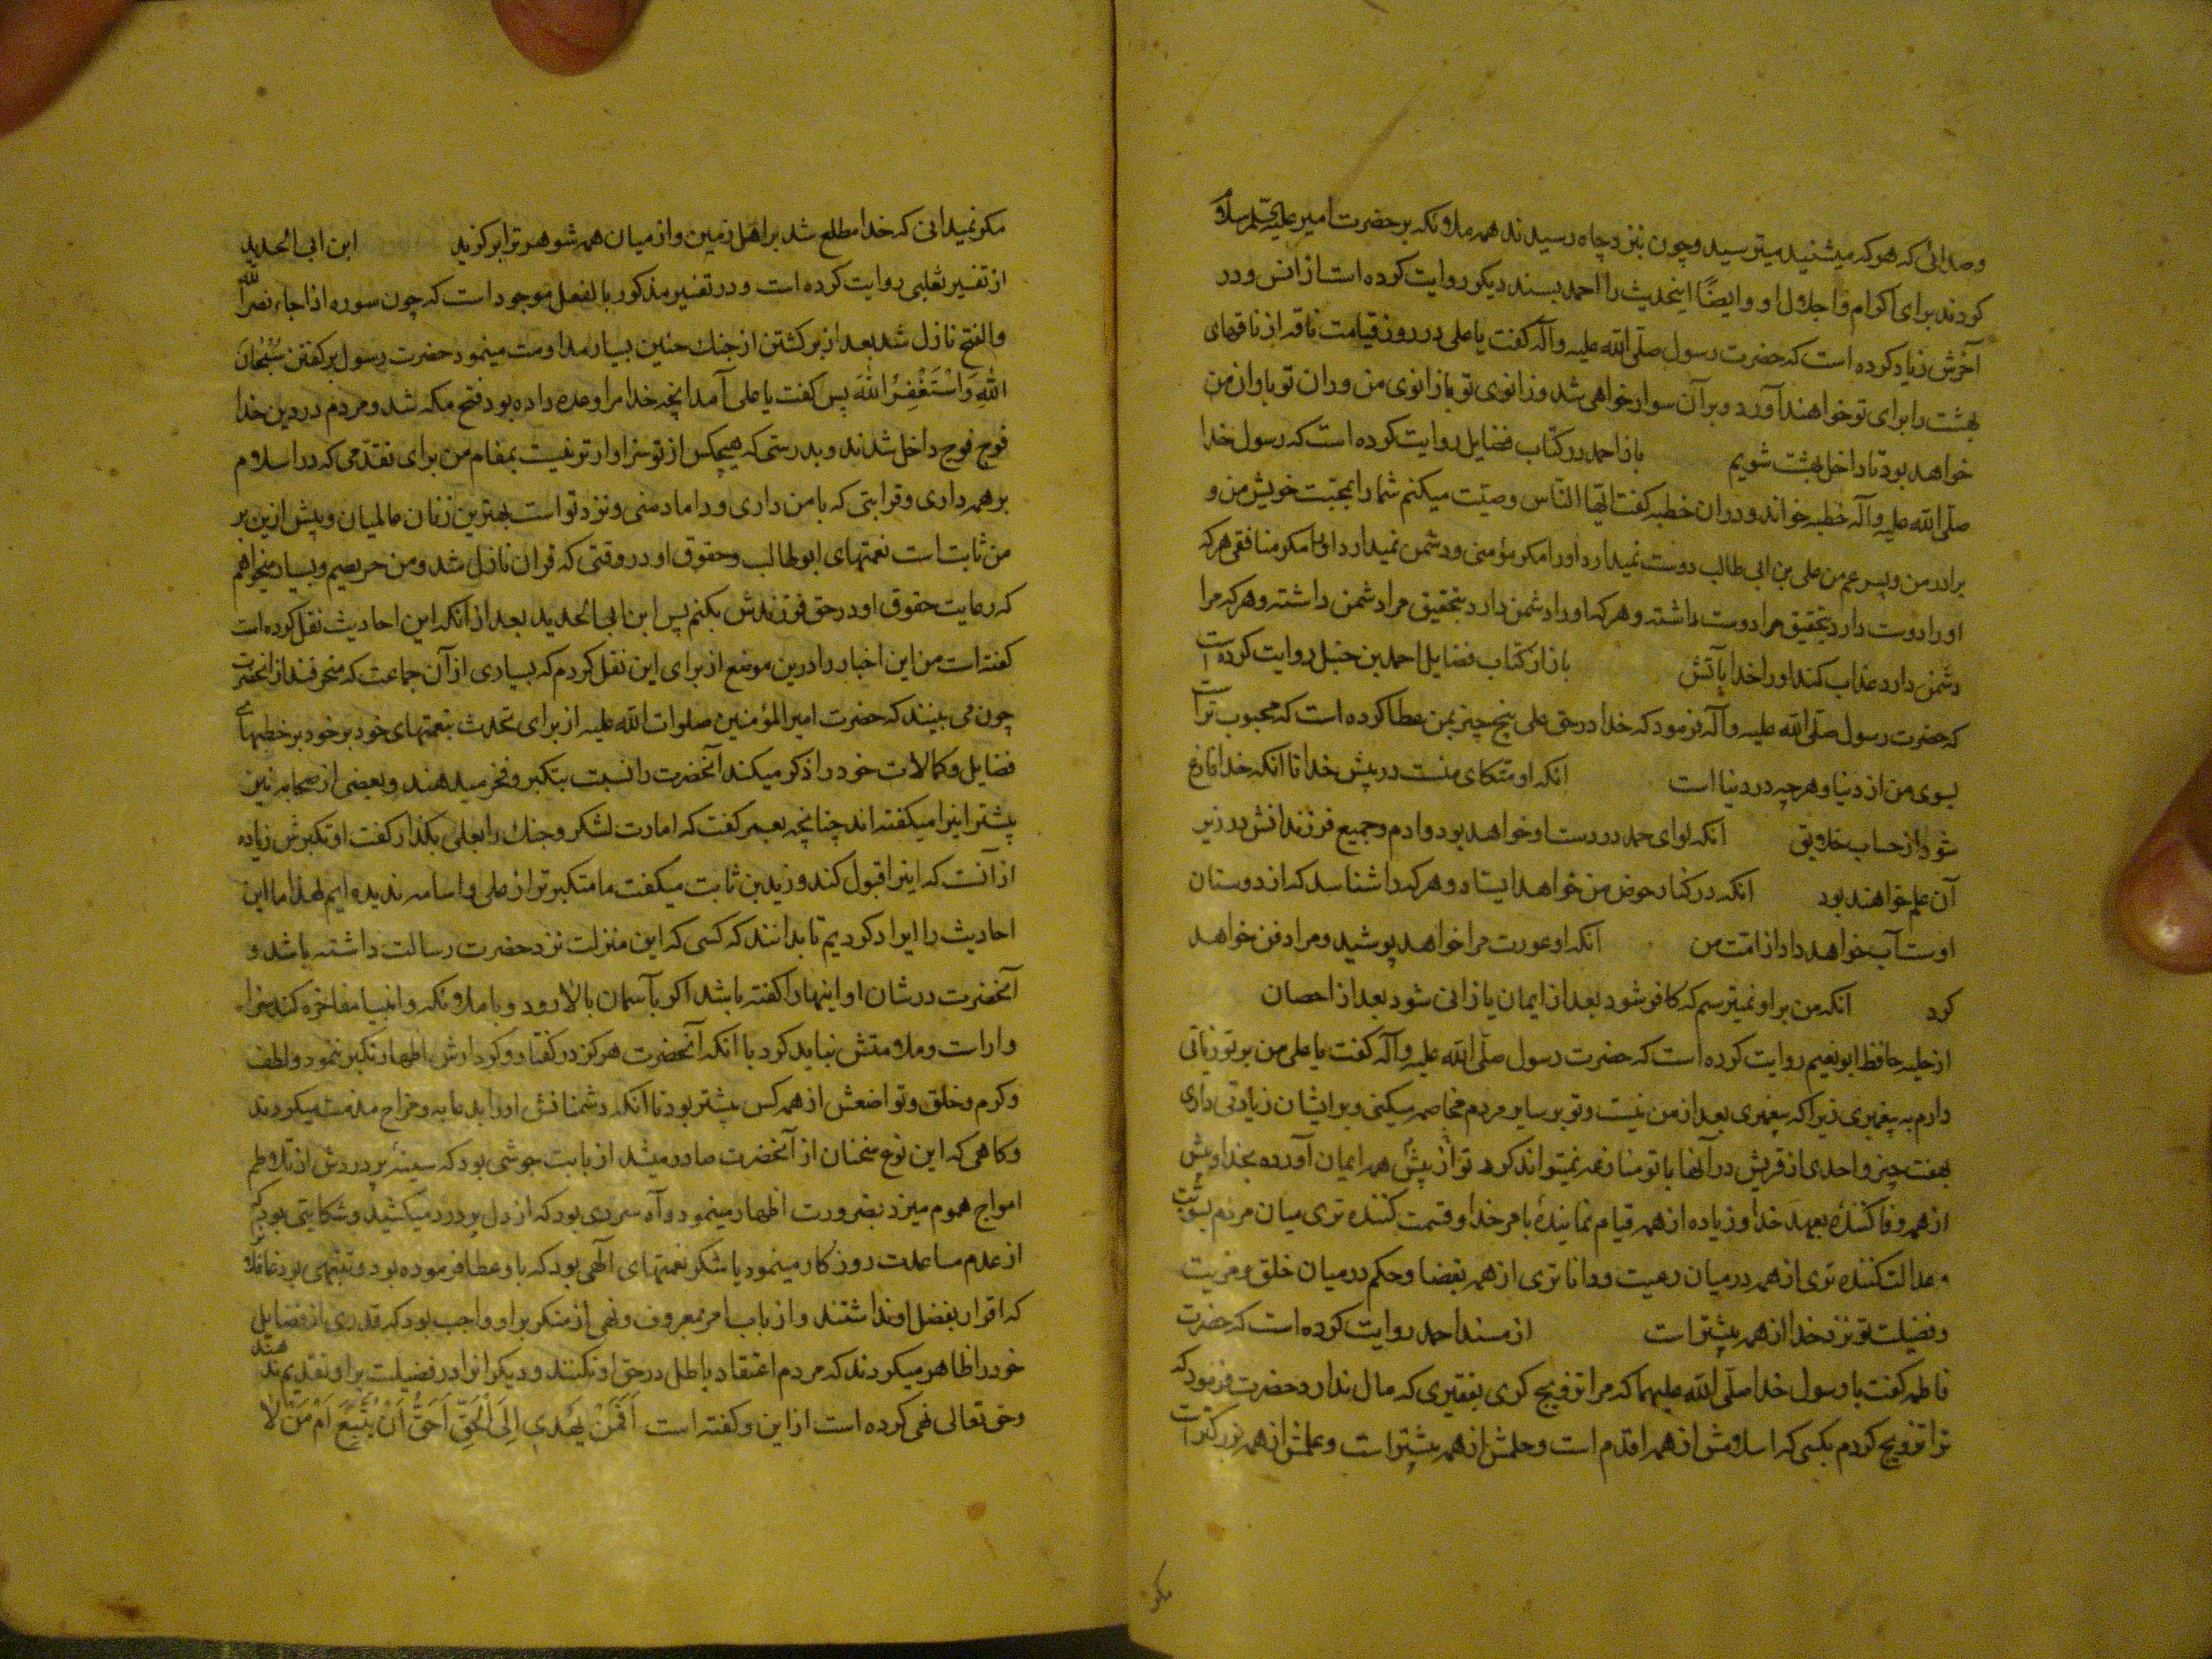 وصدائی که هر که میشنید میترسید و چون بنزد چاه رسیدند همه ملائکه بر حضرت امیر علیه السلام سلام
کردند برای اکرام و اجلال او و ایضًا اینحدیث را احمد بسند دیکر روایت کرده است از انس و در
آخرش زیاد کرده است که حضرت رسول صلّی الله علیه وآله کفت یا علی در روز قیامت ناقه از ناقهای
بهشت را برای تو خواهند آورد و بر آن سوار خواهی شد و زانوی تو با زانوی من و ران تو با ران من
خواهد بود تا داخل بهشت شویم باز احمد در کتاب فضایل روایت کرده است که رسول خدا
صلّی الله علیه وآله خطبه خواند و در ان خطبه کفت ایّها النّاس وصیّت میکنم شما را بمحبّت خویش من و
برادر من و پسر عم من علی بن ابی طالب دوست نمیدارد او را مکر مؤمنی و دشمن نمیدارد او را مکر منافقی هر که
او را دوست دارد بتحقیق مرا دوست داشته و هر که او را دشمن دارد بتحقیق مرا دشمن داشته و هر که مرا
دشمن دارد عذاب کند او را خدا بآتش باز از کتاب فضایل احمد بن حنبل روایت کرده است
که حضرت رسول صلّی الله علیه وآله فرمود که خدا در حق علی پنج چیز بمن عطا کرده است که محبوب تر است
بسوی من از دنیا و هر چه در دنیا است انکه او متکای منست در پیش خدا تا انکه خدا فارغ
شود از حساب خلایق انکه لوای حمد در دست او خواهد بود و ادم و جمیع فرزندانش در زیر
آن علم خواهند بود انکه در کنار حوض من خواهد ایستاد و هر که را شناسد که از دوستان
اوست آب خواهد داد از امّت من انکه او عورت مرا خواهد پوشید و مرا دفن خواهد
کرد انکه من بر او نمیترسم که کافر شود بعد از ایمان یا زانی شود بعد از احصان
از حلیه حافظ ابو نعیم روایت کرده است که حضرت رسول صلّی الله علیه وآله کفت یا علی من بر تو زیاتی
دارم به پیغمبری زیرا که پیغمبری بعد از من نیست و تو بر سایر مردم مخاصمه میکنی و بر ایشان زیادتی داری
بهفت چیز و احدی از قریش در آنها با تو منازعه نمیتواند کرد تو از پیش همه ایمان آورده بخدا و بیش
از همه وفا کنندهٔ بعهد خدا و زیاده از همه قیام نمایندهٔ بامر خدا و قسمت کننده تری میان مردم بسویّت
و عدالت کننده تری از همه در میان رعیت و دانا تری از همه بقضا و حکم در میان خلق و مزیت
و فضیلت تو نزد خدا از همه بیشتر است از مسند احمد روایت کرده است که حضرت
فاطمه کفت با رسول خدا صلّی الله علیهما که مرا تزویج کردی بفقیری که مال ندارد حضرت فرمود که
ترا تزویج کردم بکسی که اسلامش از همه اقدم است و حلمش از همه بیشتر است و علمش از همه بزرکتر است
مکر
مکر نمیدانی که خدا مطلع شد بر اهل زمین و از میان همه شوهر ترا بر کزید ابن ابی الحدید
از تفسیر ثعلبی روایت کرده است و در تفسیر مذکور بالفعل موجود است که چون سوره اذا جاء نصر الله
والفتح نازل شد بعد از بر کشتن از جنك حنین بسیار مداومت مینمود حضرت رسول بر کفتن سُبْحٰانَ
اللّٰهِ وَاَسْتَغْفِرُ اللّٰهَ پس کفت یا علی آمد انچه خدا مرا وعده داده بود فتح مکه شد و مردم در دین خدا
فوج فوج داخل شدند و بدرستی که هیچکس از تو سزاوار تر نیست بمقام من برای تقدّمی که در اسلام
بر همه داری و قرابتی که با من داری و داماد منی و نزد تو است بهترین زنان عالمیان و پیش ازین بر
من ثابت است نعمتهای ابو طالب و حقوق او در وقتی که قران نازل شد و من حریصم و بسیار میخواهم
که رعایت حقوق او در حق فرزندش بکنم پس ابن ابی الحدید بعد از انکه این احادیث نقل کرده است
کفته است من این اخبار را درین موضع از برای این نقل کردم که بسیاری از آن جماعت که منحرفند از انحضرت
چون می بینند که حضرت امیر المؤمنین صلوات الله علیه از برای تحدث بنعمتهای خود بر خود بر خطبها
فضایل و کمالات خود را ذکر میکند آنحضرت را نسبت بتکبر و فخر میدهند و بعضی از صحابه نیز
پیشتر اینرا میکفته اند چنانچه بعمر کفت که امارت لشکر و جنك را بعلی بکذار کفت او تکبرش زیاده
از آنست که اینرا قبول کند و زید بن ثابت میکفت ما متکبر تر از علی و اسامه ندیده ایم لهذا ما این
احادیث را ایراد کردیم تا بدانند که کسی که این منزلت نزد حضرت رسالت داشته باشد و
آنحضرت در شان او اینها را کفته باشد اکر بآسمان بالا رود و با ملائکه و انبیا مفاخره کند سزا
وار است و ملامتش نباید کرد با انکه آنحضرت هرکز در کفتار و کردارش اظهار تکبر ننمود و لطف
و کرم و خلق و تواضعش از همه کس بیشتر بود تا انکه دشمنانش او را بدعابه و مزاح مذمت میکردند
و کاهی که این نوع سخنان از آنحضرت صادر میشد از بابت جوشی بود که سینهٔ پر دردش از تلاطم
امواج هموم میزد بضرورت اظهار مینمود و آه سردی بود که از دل پر درد میکشید و شکایتی بود که
از عدم مساعدت روزکار مینمود یا شکر نعمتهای الهی بود که باو عطا فرموده بود و تنبیهی بود غافلان را
که اقرار بفضل او نداشتند و از باب امر بمعروف و نهی از منکر بر او واجب بود که قدری از فضایل
خود را ظاهر میکردند که مردم اعتقاد باطل در حق او نکنند و دیکرانرا در فضیلت بر او تقدیم ندهند
و حق تعالی نهی کرده است از این و کفته است اَفَمَنْ یَهْدِی اِلَی الْحَقِّ اَحَقُّ اَنْ یُتَّبَعَ اَمْ مَنْ لٰا